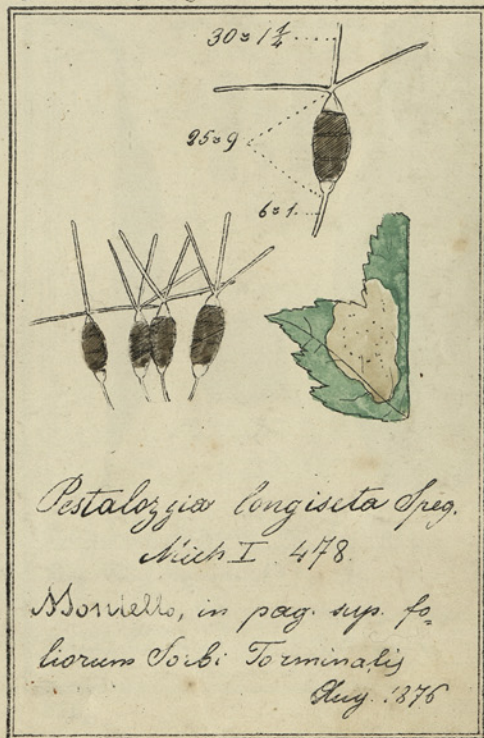 30≈1¼
25≈9
6≈1.
Pestalozzia longiseta Speg.
Mich I 478.
in pag. sup. fo-
liorum Sorbi Torminalis
Aug. 1876